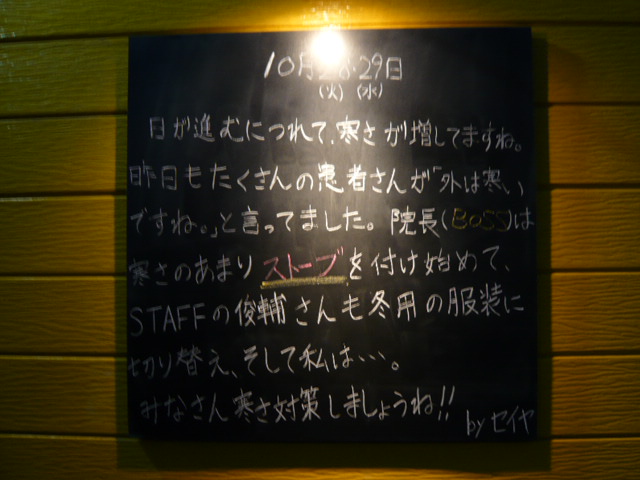 10月28・29日
(火) (水)
日が進むにつれて、寒さが増してますね。
昨日もたくさんの患者さんが「外は寒い
ですね。」と言ってました。院長(BOSS)は
寒さのあまりストーブを付け始めて、
STAFFの俊輔さんも冬用の服装に
切り替え、そして私は・・・。
みなさん寒さ対策しましょうね!!
by セイヤ